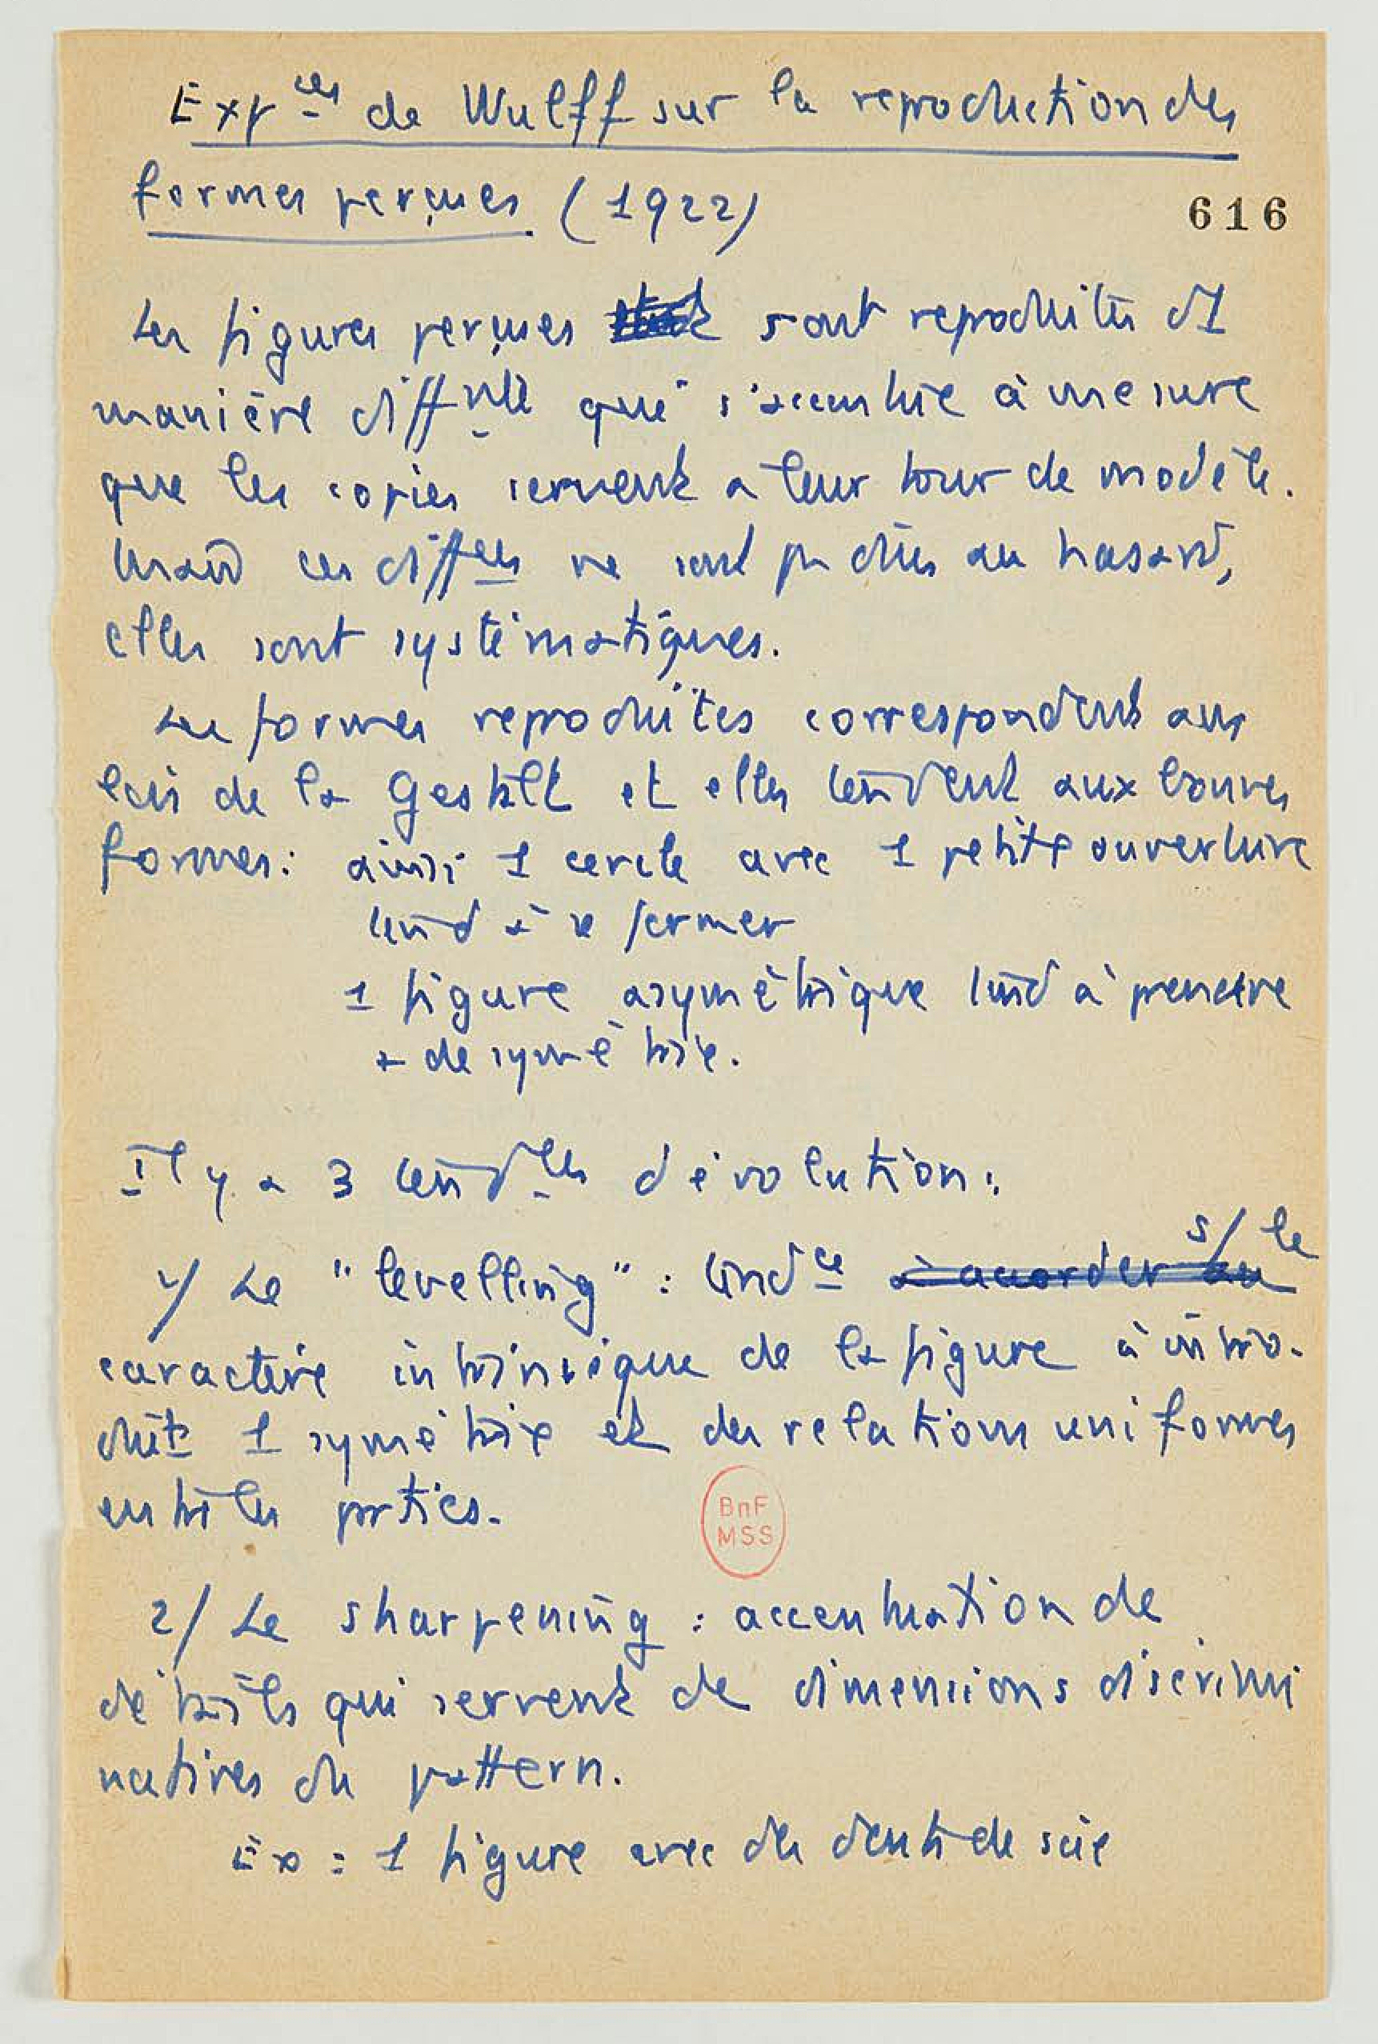 Expces de Wulff sur la reproduction des
formes perçues (1922)
616
Les figures perçues sont reproduites d'1
manière diffnte qui s'accentue à mesure
que les copies servent a leur tour de modèle.
Mais ces diffces ne sont pas dues au hasard,
elles sont systématiques.
Les formes reproduites correspondent aux
lois de la Gestalt et elles tendent aux bonnes
formes: ainsi 1 cercle avec 1 petite ouverture
tend à se fermer
1 figure asymétrique tend à prendre
+ de symétrie.
Il y a 3 tendces d'évolution:
1/ Le "levelling" : tendce à accorder au s/ le
caractère intrinsèque de la figure à intro-
duire 1 symétrie et des relations uniformes
entre les parties.
BnF
MSS
2/ Le sharpening : accentuation de
détails qui servent de dimensions discrimi
natives du pattern.
Ex : 1 figure avec des dents de scie